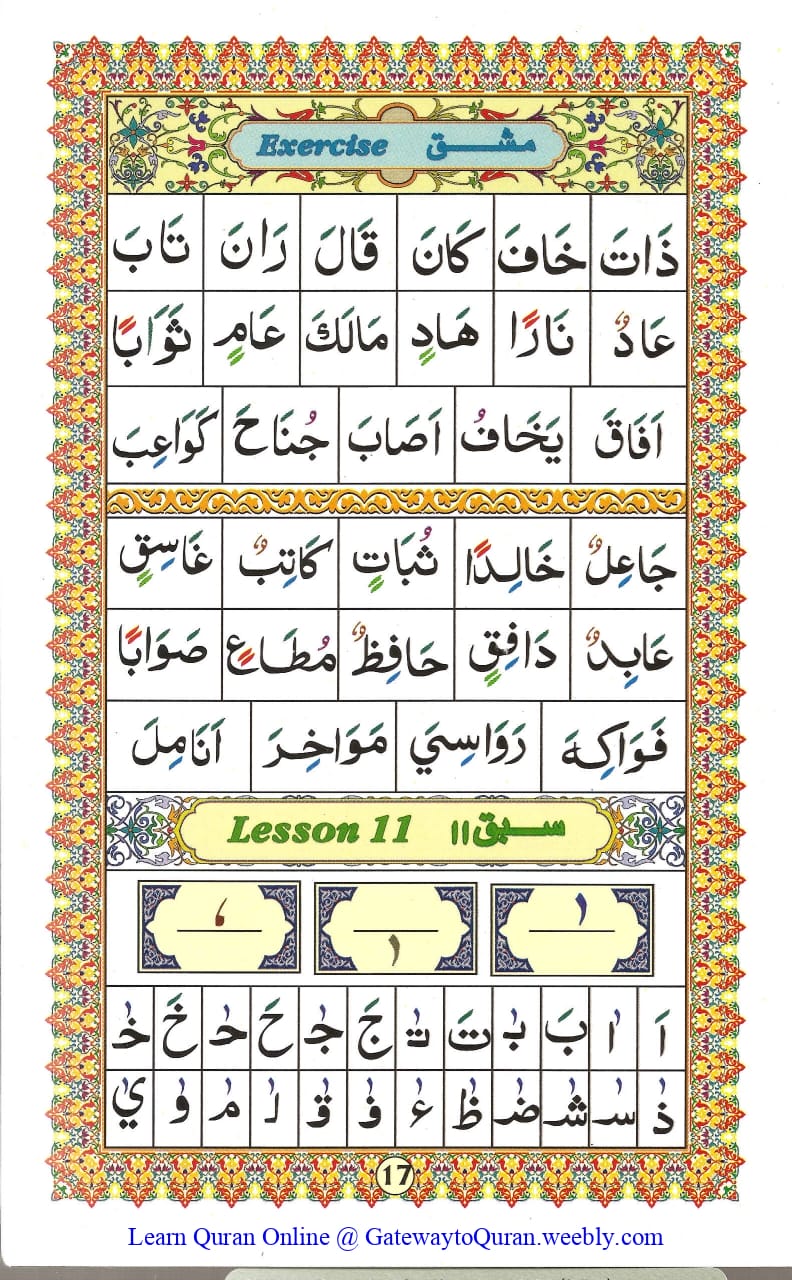 Exercise مشق
ذَاتَ خَافَ كَانَ قَالَ رَانَ تَابَ
عَادٌ نَارًا هَادٍ مَالَكَ عَامٍ ثَوَابًا
اَفَاقَ يَخَافُ اَصَابَ جُنَاحَ كَوَاعِبَ
جَاعِلٌ خَالِدًا ثُبَاتٍ كَاتِبٌ غَاسِقٍ
عَابِدٌ دَافِقٍ حَافِظٌ مُطَاعٍ صَوَابًا
فَوَاكِهَ رَوَاسِيَ مَوَاخِرَ اَنَامِلَ
Lesson 11 سبق ۱۱
اَ ا بَ بٰ تَ تٰ جَ جٰ حَ حٰ خَ خٰ
ذٰ سٰ شٰ ضٰ ظٰ ءٰ فٰ قٰ لٰ مٰ وٰ يٰ
17
Learn Quran Online @ GatewaytoQuran.weebly.com